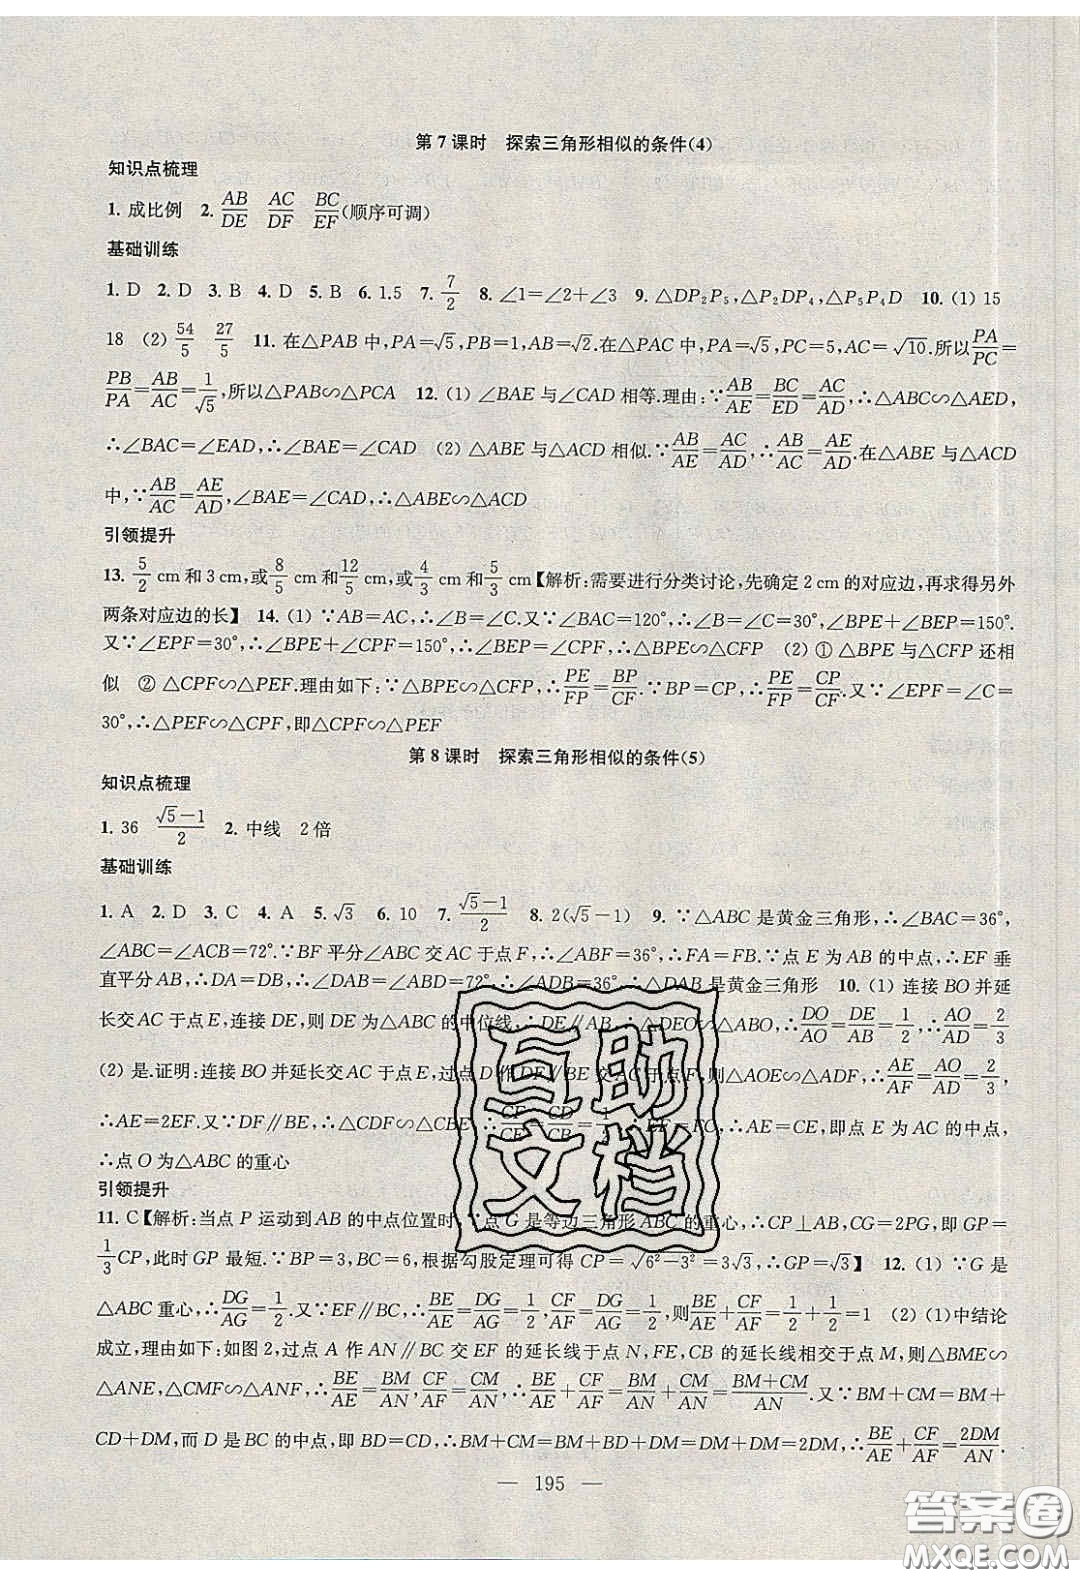 第7课时　探索三角形相似的条件(4)
知识点梳理
1. 成比例　2. AB/DE　AC/DF　BC/EF(顺序可调)
基础训练
1. D　2. D　3. B　4. D　5. B　6. 1.5　7. 7/2　8. ∠1=∠2+∠3　9. △DP₂P₅,△P₂P₅P₄,△P₅P₄D　10. (1) 15
18　(2) 54/5　27/5　11. 在△PAB中,PA=√5,PB=1,AB=√2.在△PAC中,PA=√5,PC=5,AC=√10.所以PA/PC=
PB/PA=AB/AC=1/√5,所以△PAB∽△PCA　12. (1) ∠BAE与∠CAD相等.理由:∵AB/AE=BC/ED=AC/AD,∴△ABC∽△AED,
∴∠BAC=∠EAD,∴∠BAE=∠CAD　(2) △ABE与△ACD相似.∵AB/AE=AC/AD,∴AB/AC=AE/AD.在△ABE与△ACD
中,∵AB/AC=AE/AD,∠BAE=∠CAD,∴△ABE∽△ACD
引领提升
13. 5/2 cm和3 cm,或8/5 cm和12/5 cm,或4/3 cm和5/3 cm【解析:需要进行分类讨论,先确定2 cm的对应边,再求得另外
两条对应边的长】　14. (1) ∵AB=AC,∴∠B=∠C.又∵∠BAC=120°,∴∠B=∠C=30°,∠BPE+∠BEP=150°.
又∵∠EPF=30°,∴∠BPE+∠CPF=150°,∴∠BEP=∠CPF,∴△BPE∽△CFP　(2) ① △BPE与△CFP还相
似　② △CPF∽△PEF.理由如下:∵△BPE∽△CFP,∴PE/FP=BP/CF.∵BP=CP,∴PE/FP=CP/CF.又∵∠EPF=∠C=
30°,∴△PEF∽△CPF,即△CPF∽△PEF
第8课时　探索三角形相似的条件(5)
知识点梳理
1. 36　(√5-1)/2　2. 中线　2倍
基础训练
1. A　2. D　3. C　4. A　5. √3　6. 10　7. (√5-1)/2　8. 2(√5-1)　9. ∵△ABC是黄金三角形,∴∠BAC=36°,
∠ABC=∠ACB=72°.∵BF平分∠ABC交AC于点F,∴∠ABF=36°,∴FA=FB.∵点E为AB的中点,∴EF垂
直平分AB,∴DA=DB,∴∠DAB=∠ABD=72°,∴∠ADB=36°,∴△DAB是黄金三角形　10. (1) 连接BO并延
长交AC于点E,连接DE,则DE为△ABC的中位线,∴DE∥AB,∴△DEO∽△ABO,∴DO/AO=DE/AB=1/2,∴AO/AD=2/3
(2) 是.证明:连接BO并延长交AC于点E,过点D作DF∥BE交AC于点F,则△AOE∽△ADF,∴AE/AF=AO/AD=2/3,
∴AE=2EF.又∵DF∥BE,∴△CDF∽△CBE,∴CF/CE=CD/CB=1/2,∴EF=FC,∴AE=CE,即点E为AC的中点,
∴点O为△ABC的重心
引领提升
11. C【解析:当点P运动到AB的中点位置时,∵点G是等边三角形ABC的重心,∴CP⊥AB,CG=2PG,即GP=
1/3CP,此时GP最短.∵BP=3,BC=6,根据勾股定理可得CP=√(6²-3²)=3√3,∴GP=√3】　12. (1) ∵G是
△ABC重心,∴DG/AG=1/2.又∵EF∥BC,∴BE/AE=DG/AG=1/2,CF/AF=DG/AG=1/2,则BE/AE+CF/AF=1/2+1/2=1　(2) (1)中结论
成立,理由如下:如图2,过点A作AN∥BC交EF的延长线于点N,FE,CB的延长线相交于点M,则△BME∽
△ANE,△CMF∽△ANF,∴BE/AE=BM/AN,CF/AF=CM/AN,∴BE/AE+CF/AF=BM/AN+CM/AN=(BM+CM)/AN.又∵BM+CM=BM+
CD+DM,而D是BC的中点,即BD=CD,∴BM+CM=BM+BD+DM=DM+DM=2DM,∴BE/AE+CF/AF=2DM/AN.
— 195 —
互助
文档
答案圈
MXQE.COM